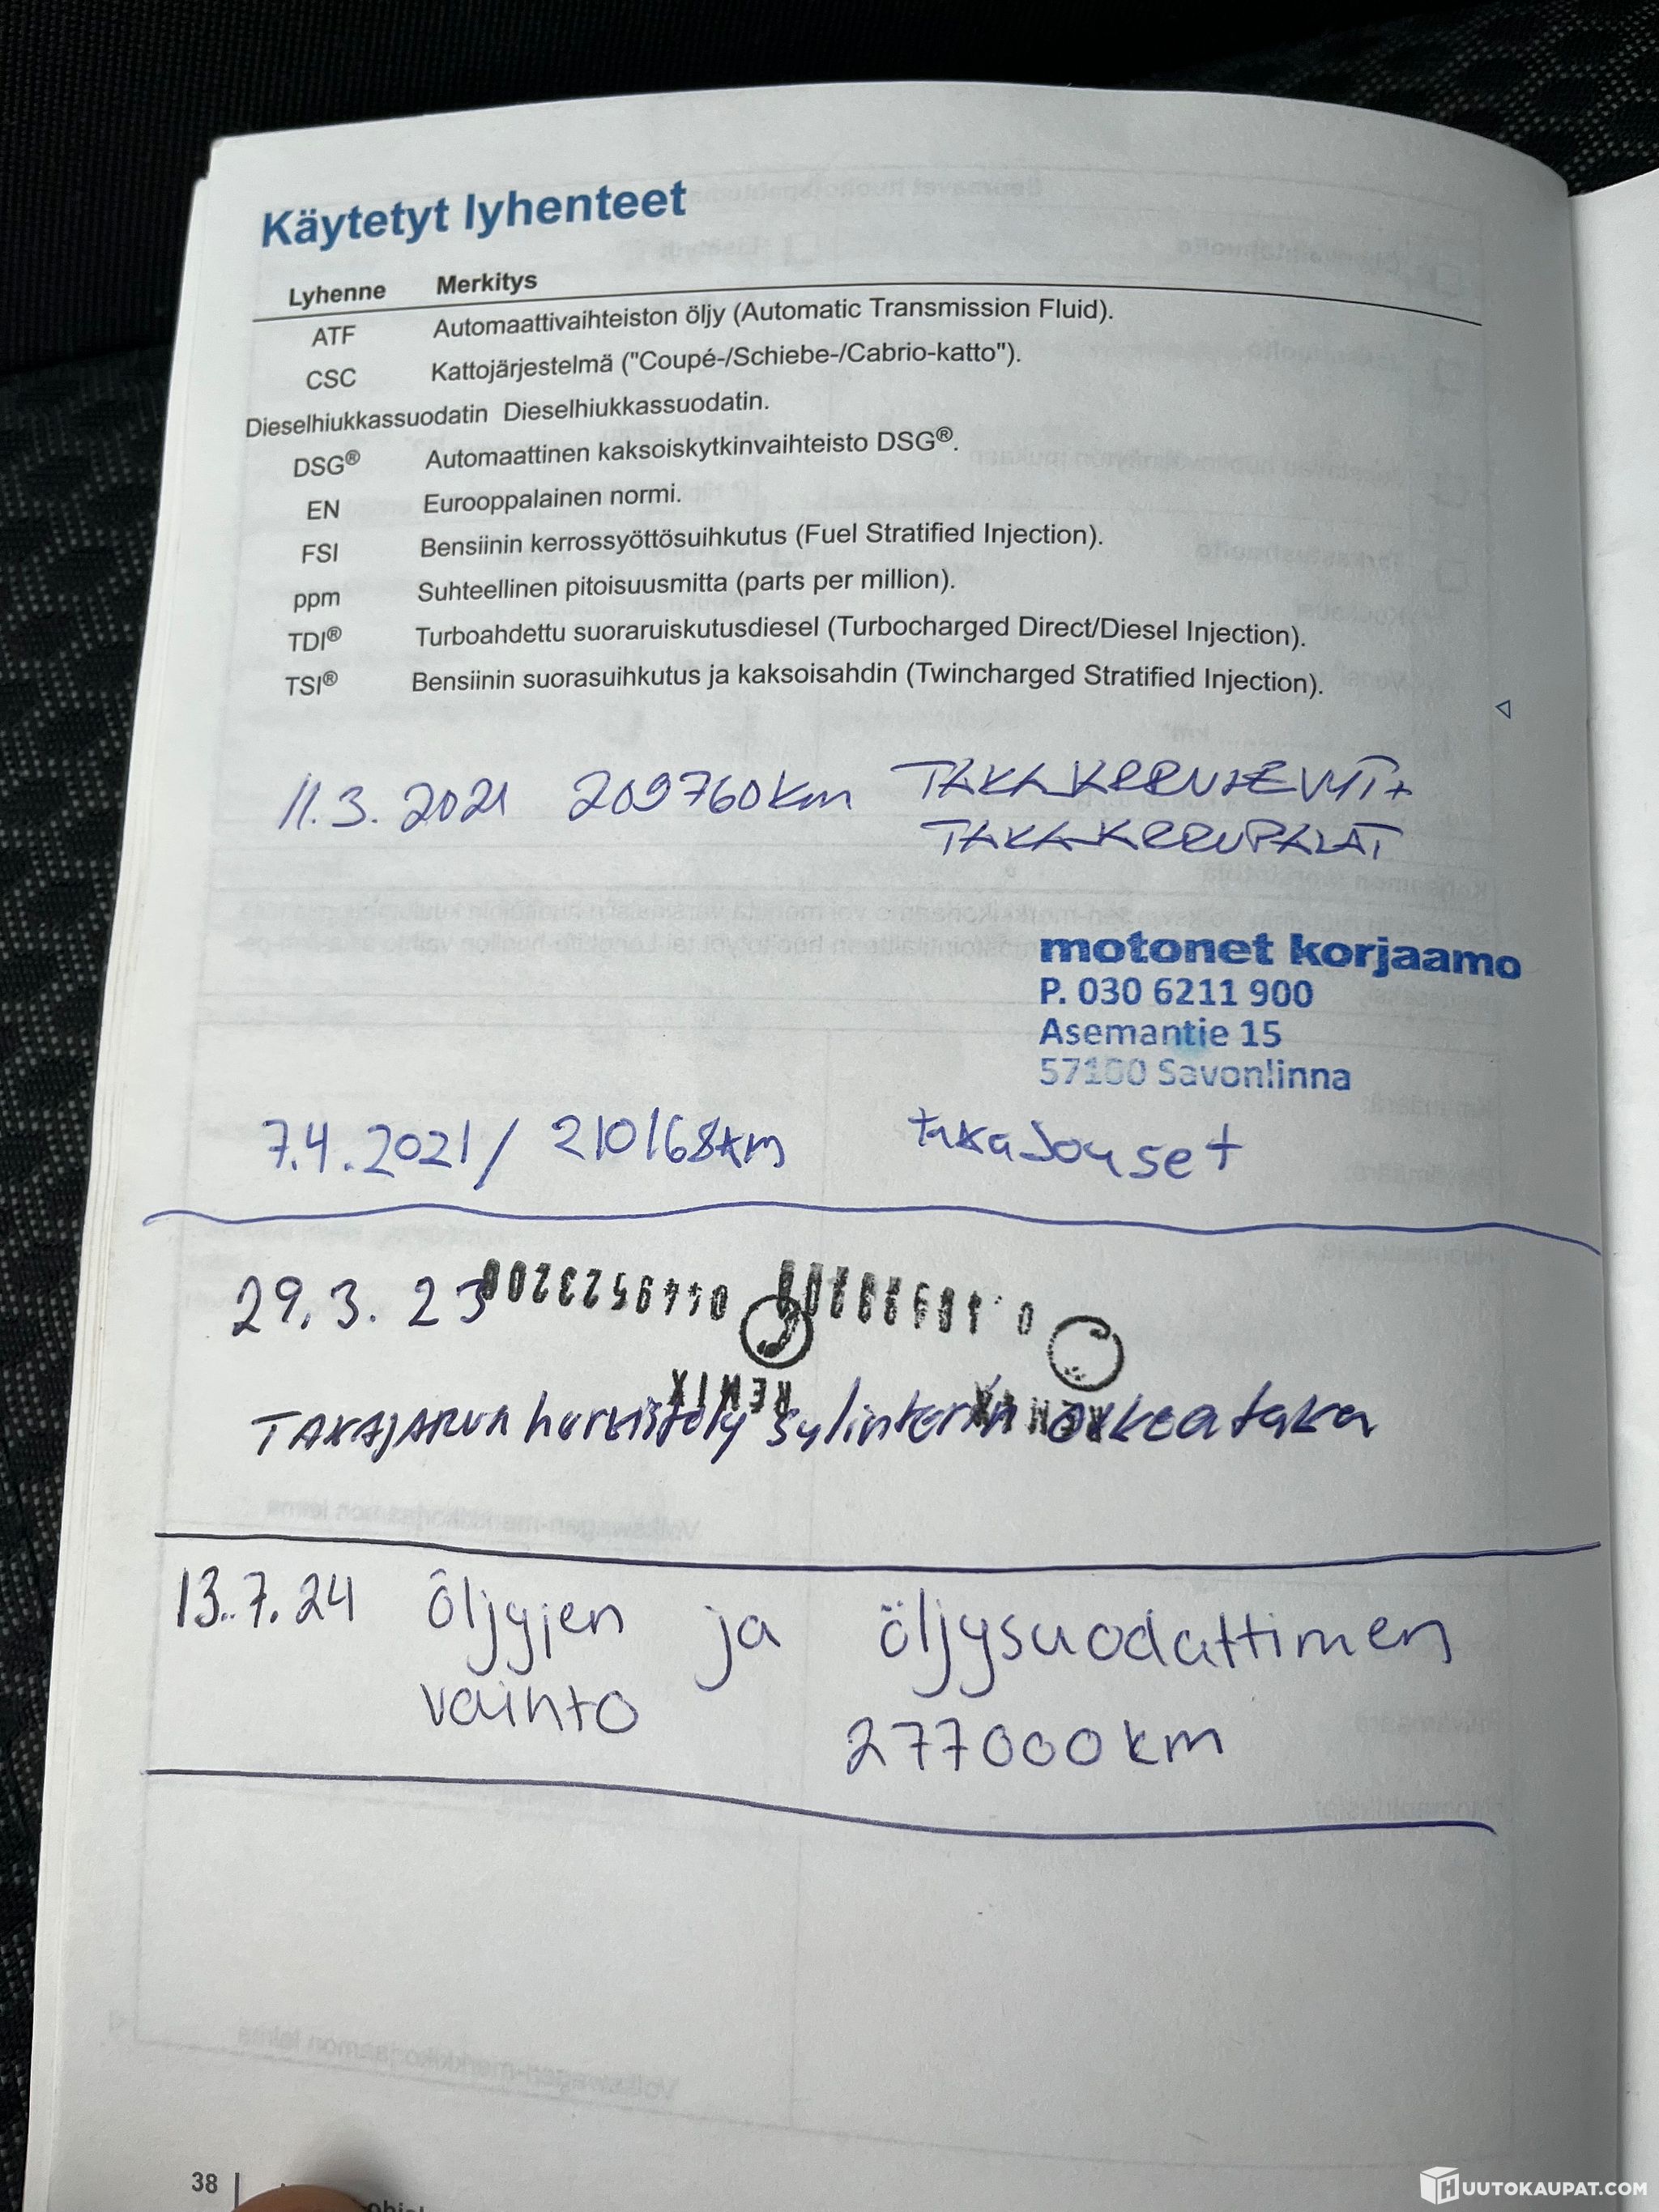 Käytetyt lyhenteet
Lyhenne Merkitys
ATF Automaattivaihteiston öljy (Automatic Transmission Fluid).
CSC Kattojärjestelmä ("Coupé-/Schiebe-/Cabrio-katto").
Dieselhiukkassuodatin Dieselhiukkassuodatin.
DSG® Automaattinen kaksoiskytkinvaihteisto DSG®.
EN Eurooppalainen normi.
FSI Bensiinin kerrossyöttösuihkutus (Fuel Stratified Injection).
ppm Suhteellinen pitoisuusmitta (parts per million).
TDI® Turboahdettu suoraruiskutusdiesel (Turbocharged Direct/Diesel Injection).
TSI® Bensiinin suorasuihkutus ja kaksoisahdin (Twincharged Stratified Injection).
11.3.2021 209760km
TAKAJARRUPALAT
motonet korjaamo
P. 030 6211 900
Asemantie 15
57100 Savonlinna
7.4.2021/ 210168km takaJouset
29.3.23
TAKAJARUN sylinterin oikea taka
13.7.24 öljyjen ja öljysuodattimen
vaihto 277000km
38
HUUTOKAUPAT.COM